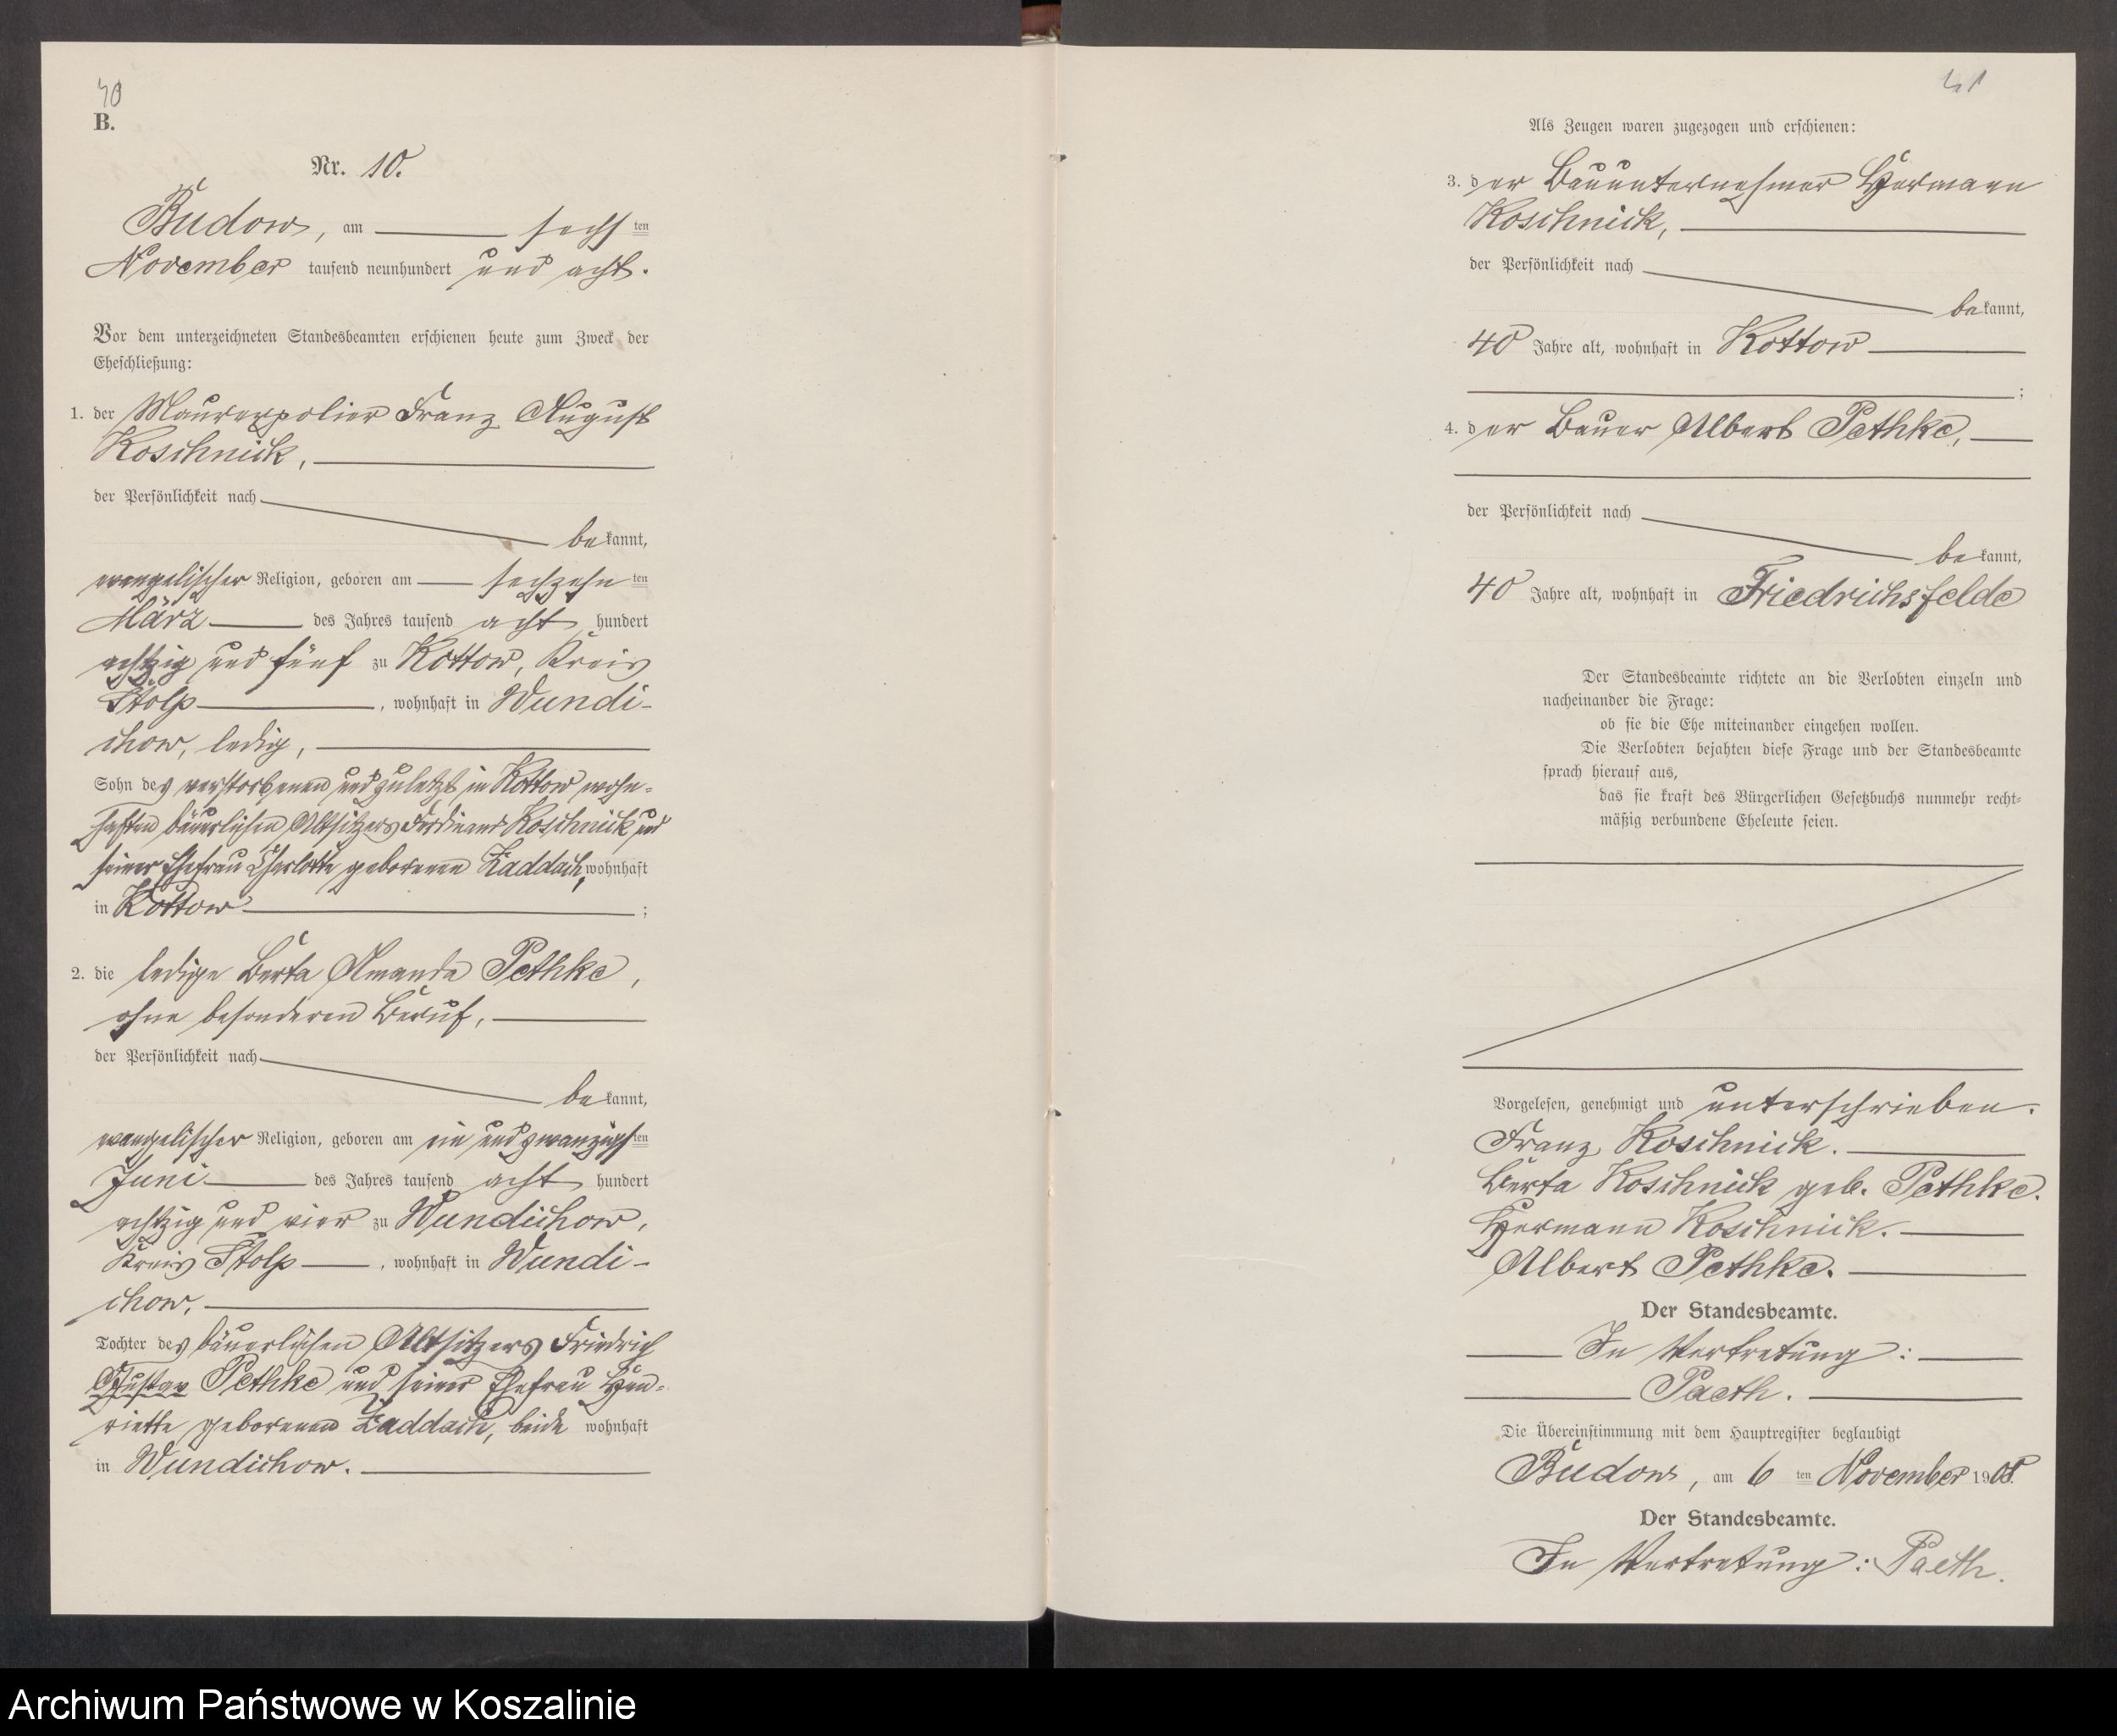 40
B.
Nr. 10.
Budow, am sechsten
November tausend neunhundert und acht.
Vor dem unterzeichneten Standesbeamten erschienen heute zum Zweck der
Eheschließung:
1. der Maurerpolier Franz August
Koschnick,
der Persönlichkeit nach
bekannt,
evangelischer Religion, geboren am sechzehnten
März des Jahres tausend acht hundert
achtzig und fünf zu Kottow, Kreis
Stolp, wohnhaft in Wundi-
chow, ledig,
Sohn des verstorbenen und zuletzt in Kottow wohn-
haften bäuerlichen Altsitzers Ferdinand Koschnick und
seiner Ehefrau Charlotte geborenen Zaddach, wohnhaft
in Kottow;
2. die ledige Berta Amanda Pethke,
ohne besonderen Beruf,
der Persönlichkeit nach
bekannt,
evangelischer Religion, geboren am ein und zwanzigsten
Juni des Jahres tausend acht hundert
achtzig und vier zu Wundichow,
Kreis Stolp, wohnhaft in Wundi-
chow,
Tochter des bäuerlichen Altsitzers Friedrich
Gustav Pethke und seiner Ehefrau Hen-
riette geborenen Zaddach, beide wohnhaft
in Wundichow.
41
Als Zeugen waren zugezogen und erschienen:
3. der Bauunternehmer Hermann
Koschnick,
der Persönlichkeit nach
bekannt,
40 Jahre alt, wohnhaft in Kottow
;
4. der Bauer Albert Pethke,
der Persönlichkeit nach
bekannt,
40 Jahre alt, wohnhaft in Friedrichsfelde
Der Standesbeamte richtete an die Verlobten einzeln und
nacheinander die Frage:
ob sie die Ehe miteinander eingehen wollen.
Die Verlobten bejahten diese Frage und der Standesbeamte
sprach hierauf aus,
daß sie kraft des Bürgerlichen Gesetzbuchs nunmehr recht-
mäßig verbundene Eheleute seien.
Vorgelesen, genehmigt und unterschrieben.
Franz Koschnick.
Berta Koschnick geb. Pethke.
Hermann Koschnick.
Albert Pethke.
Der Standesbeamte.
In Vertretung:
Paeth.
Die Übereinstimmung mit dem Hauptregister beglaubigt
Budow, am 6ten November 1908.
Der Standesbeamte.
In Vertretung: Paeth.
Archiwum Państwowe w Koszalinie